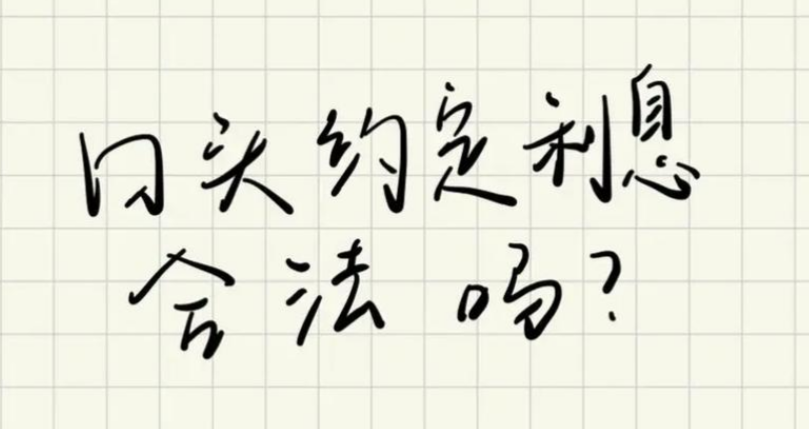 口头约定利息
合法吗?